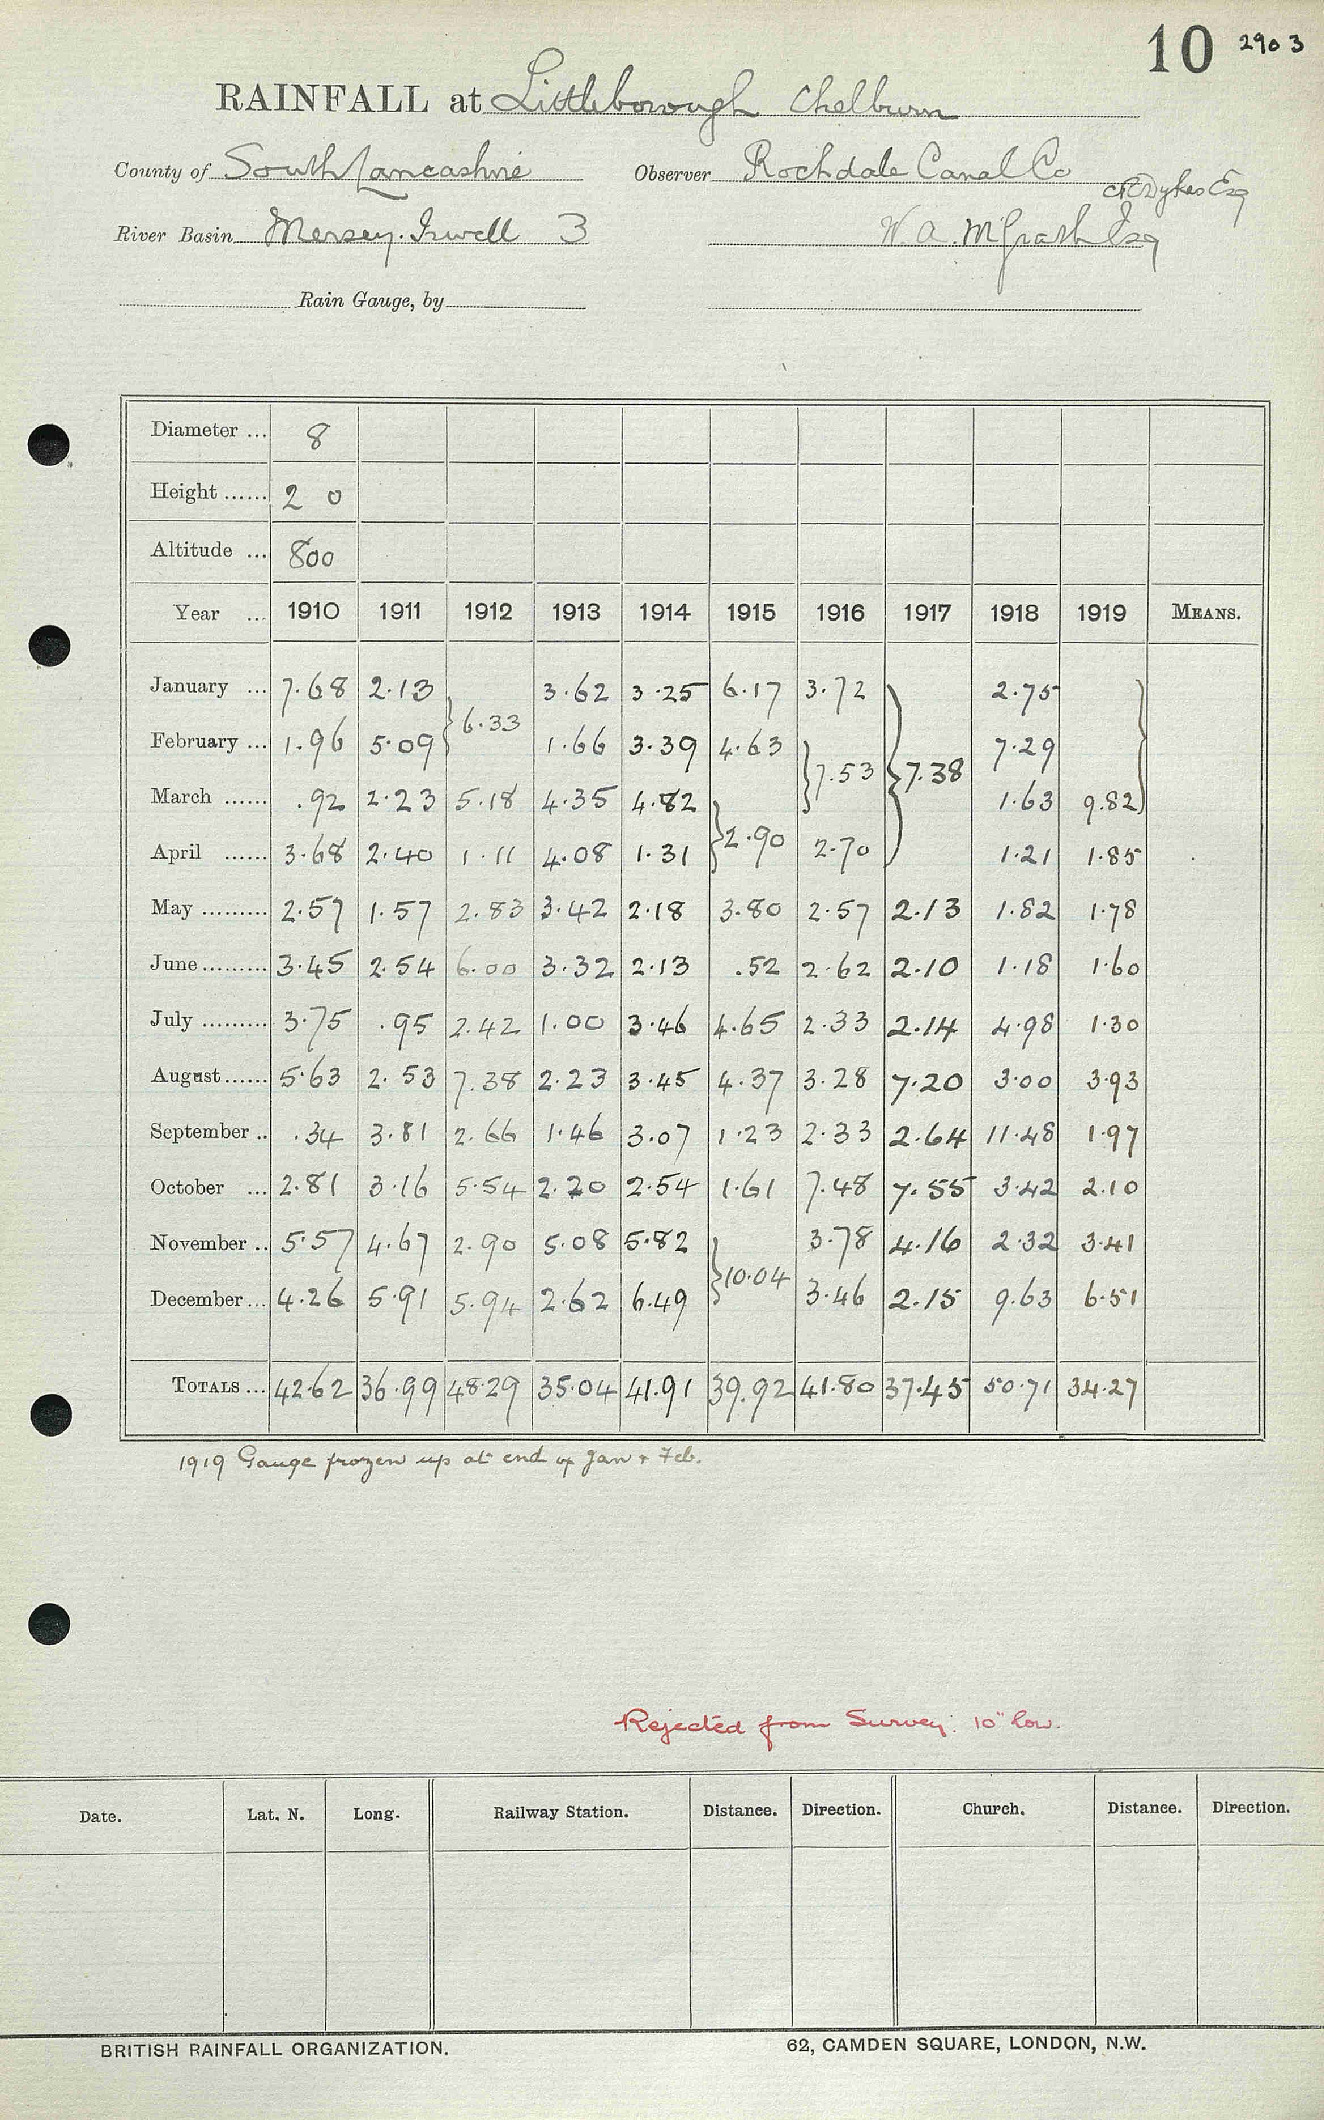 10 2903
RAINFALL at Littleborough Chelburn
County of South Lancashire Observer Rochdale Canal Co
Dykes Esq
River Basin Mersey. Irwell 3 W. A. McGrath Esq
Rain Gauge, by
Diameter ... 8
Height ...... 2 0
Altitude ... 800
Year ... 1910 1911 1912 1913 1914 1915 1916 1917 1918 1919 MEANS.
January ... 7.68 2.13 3.62 3.25 6.17 3.72 2.75
} 6.33
February ... 1.96 5.09 1.66 3.39 4.63 7.29
} 7.53 } 7.38
March ...... .92 2.23 5.18 4.35 4.82 1.63 9.82 }
} 2.90
April ...... 3.68 2.40 1.11 4.08 1.31 2.70 1.21 1.85
May ......... 2.57 1.57 2.83 3.42 2.18 3.80 2.57 2.13 1.82 1.78
June ......... 3.45 2.54 6.00 3.32 2.13 .52 2.62 2.10 1.18 1.60
July ......... 3.75 .95 2.42 1.00 3.46 4.65 2.33 2.14 4.98 1.30
August ...... 5.63 2.53 7.38 2.23 3.45 4.37 3.28 7.20 3.00 3.93
September .. .34 3.81 2.66 1.46 3.07 1.23 2.33 2.64 11.48 1.97
October ... 2.81 3.16 5.54 2.20 2.54 1.61 7.48 7.55 3.42 2.10
November .. 5.57 4.67 2.90 5.08 5.82 3.78 4.16 2.32 3.41
} 10.04
December ... 4.26 5.91 5.94 2.62 6.49 3.46 2.15 9.63 6.51
TOTALS ... 42.62 36.99 48.29 35.04 41.91 39.92 41.80 37.45 50.71 34.27
1919 Gauge frozen up at end of Jan + Feb.
Rejected from Survey: 10" low.
Date. Lat. N. Long. Railway Station. Distance. Direction. Church. Distance. Direction.
BRITISH RAINFALL ORGANIZATION. 62, CAMDEN SQUARE, LONDON, N.W.